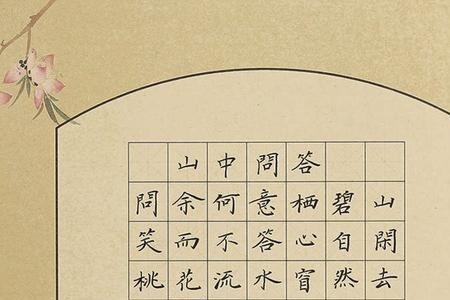 山中問答
問余何意栖碧山
笑而不答心自閑
桃花流水窅然去